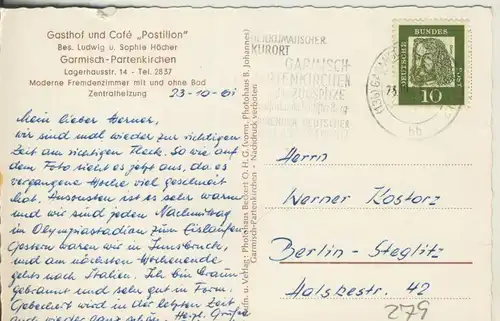 Gasthof und Café „Postillon"
Bes. Ludwig u. Sophie Höcher
Garmisch-Partenkirchen
Lagerhausstr. 14 - Tel. 2837
Moderne Fremdenzimmer mit und ohne Bad
Zentralheizung
23-10-61
Mein lieber Werner,
wir sind mal wieder zur richtigen
Zeit am richtigen Fleck. So wie auf
dem Foto sieht es jetzt aus, da es
vergangene Woche viel geschneit
hat. Ansonsten ist es sehr warm
und wir sind jeden Nachmittag
im Olympiastadion zum Eislaufen.
Gestern waren wir in Innsbruck,
und am nächsten Wochenende
gehts nach Italien. Ich bin braun
gebrannt und sehr gut in Form.
Gebechert wird in der letzten Zeit
auch wieder ganz schön. Herzl. Grüße
Aufn. u. Verlag: Photohaus Beckert O.H.G. (vorm. Photohaus B. Johannes)
Garmisch-Partenkirchen - Nachdruck verboten
HEILKLIMATISCHER
KURORT
GARMISCH-
PARTENKIRCHEN
ZUGSPITZE
DEUTSCHER
DEUTSCHE
BUNDES
POST
10
bb
Herrn
Werner Kostorz
Berlin-Steglitz
Holsbestr. 42
279